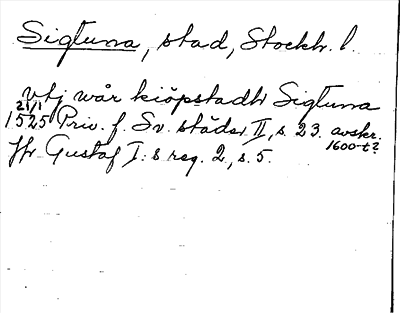 Sigtuna, stad, Stockh. l.
vtj wår kiöpstadh Sigtuna
21/1 1525 Priv. f. Sv. städer II, s. 23. avskr. 1600-t?
Jfr Gustaf I:s reg. 2, s. 5.